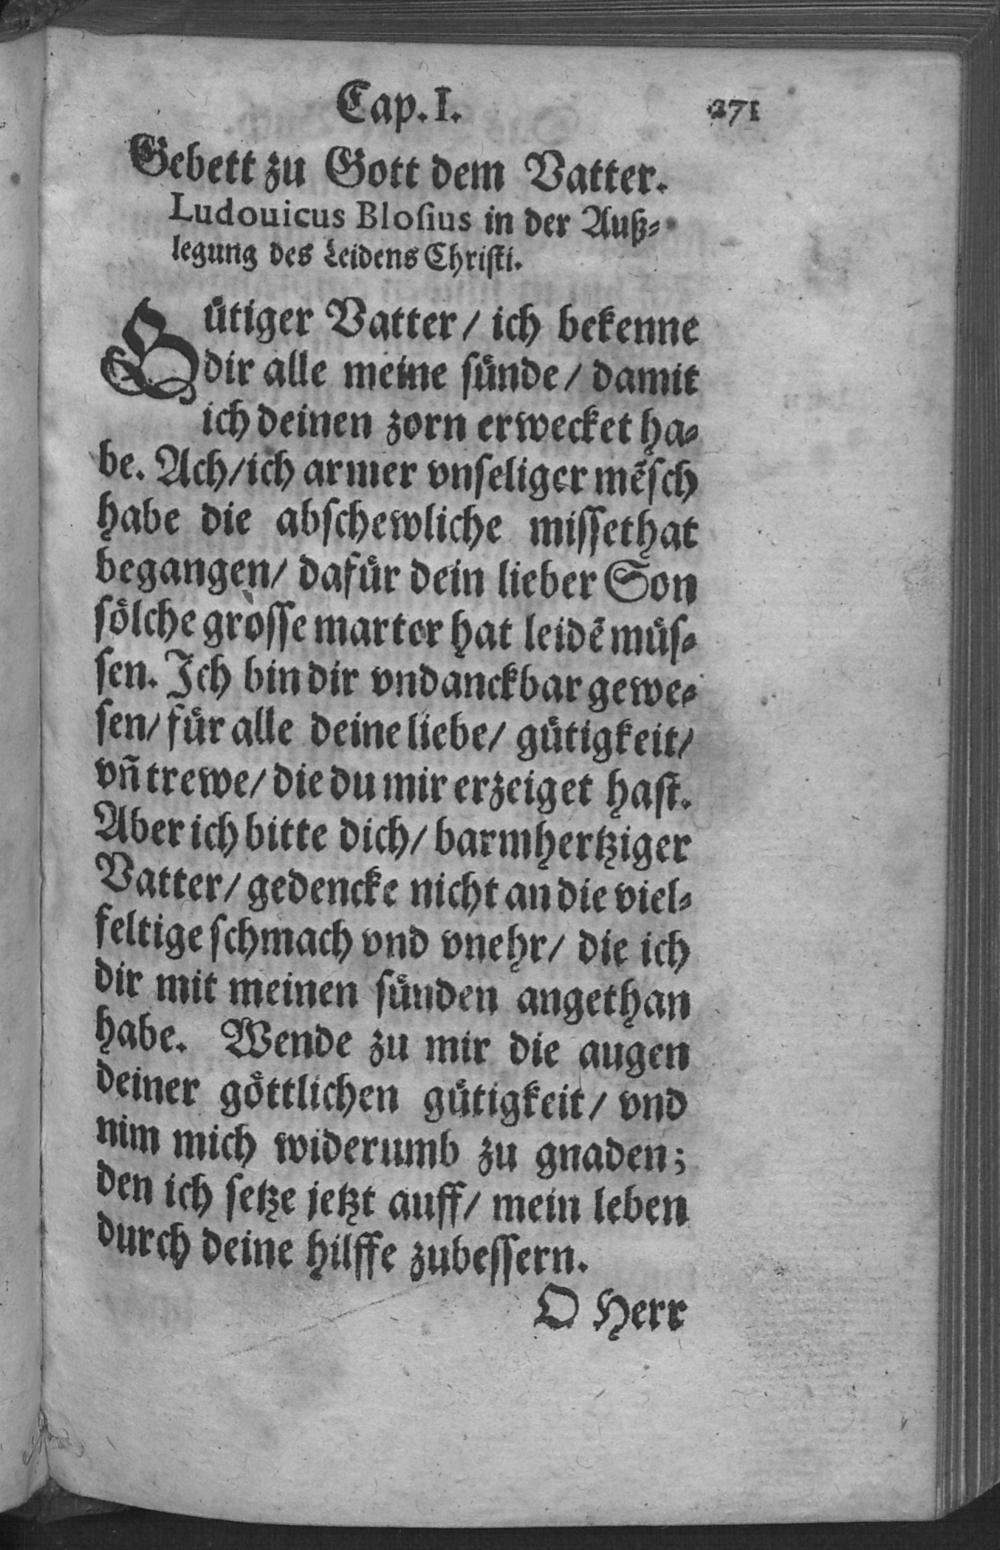 Cap. I. 271
Gebett zu Gott dem Vatter.
Ludouicus Bloſius in der Auß⸗
legung des Leidens Chriſti.
Gütiger Vatter/ ich bekenne
dir alle meine ſünde/ damit
ich deinen zorn erwecket ha⸗
be. Ach/ich armer vnſeliger mẽſch
habe die abſchewliche miſſethat
begangen/ dafür dein lieber Son
ſölche groſſe marter hat leidẽ müſ⸗
ſen. Ich bin dir vndanckbar gewe⸗
ſen/ für alle deine liebe/ gütigkeit/
vñ trewe/ die du mir erzeiget haſt.
Aber ich bitte dich/ barmhertziger
Vatter/ gedencke nicht an die viel⸗
feltige ſchmach vnd vnehr/ die ich
dir mit meinen ſünden angethan
habe. Wende zu mir die augen
deiner göttlichen gütigkeit/ vnd
nim mich widerumb zu gnaden;
den ich ſetze jetzt auff/ mein leben
durch deine hilffe zubeſſern.
O Herr